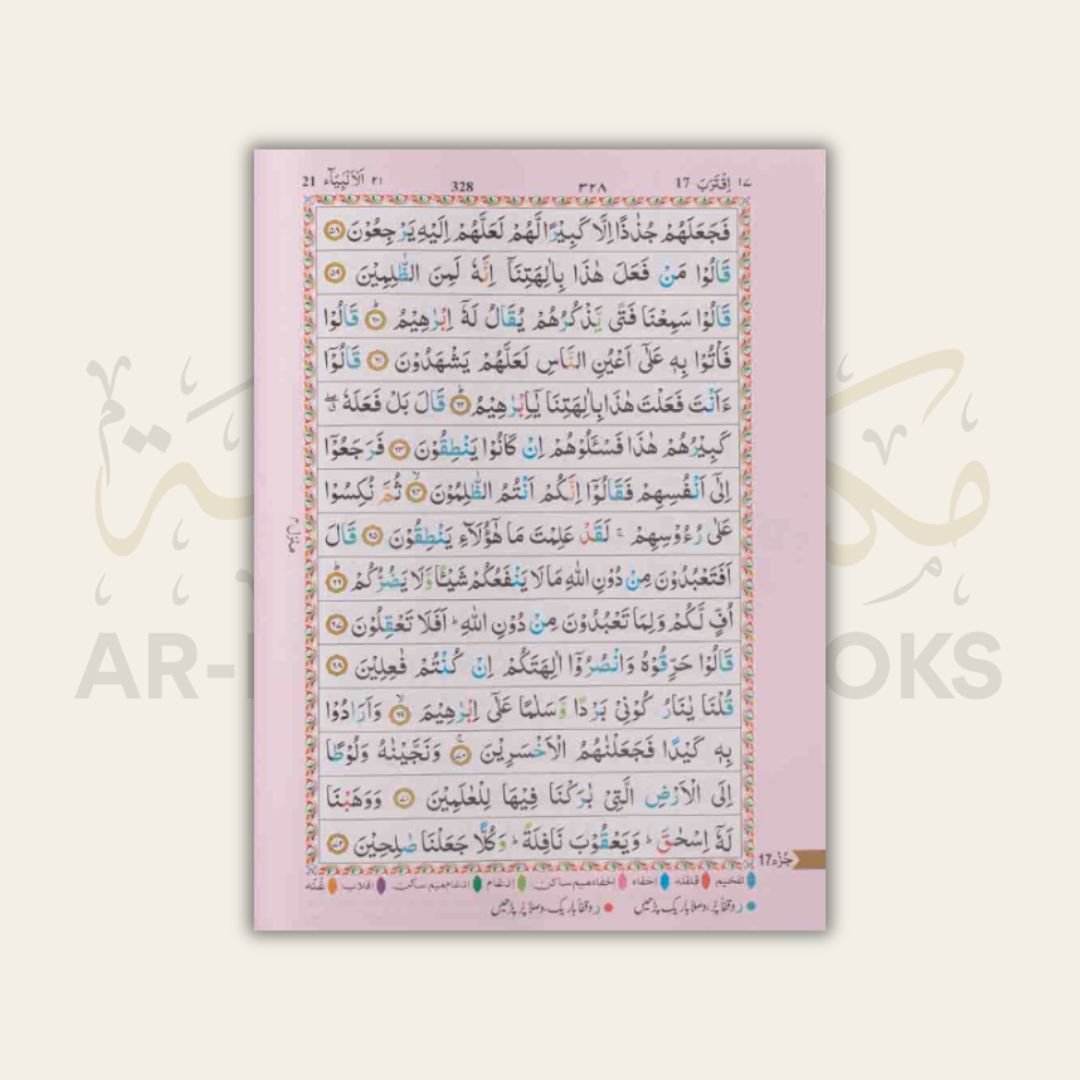 ۱۷ اِقْتَرَبَ 17 ۳۲۸ 328 ۲۱ اَلْاَنْۢبِيَآء 21
فَجَعَلَهُمْ جُذٰذًا اِلَّا كَبِيْرًا لَّهُمْ لَعَلَّهُمْ اِلَيْهِ يَرْجِعُوْنَ ۵۸
قَالُوْا مَنْ فَعَلَ هٰذَا بِاٰلِهَتِنَاۤ اِنَّهٗ لَمِنَ الظّٰلِمِيْنَ ۵۹
قَالُوْا سَمِعْنَا فَتًى يَّذْكُرُهُمْ يُقَالُ لَهٗۤ اِبْرٰهِيْمُ ؕ ۶۰ قَالُوْا
فَاْتُوْا بِهٖ عَلٰۤى اَعْيُنِ النَّاسِ لَعَلَّهُمْ يَشْهَدُوْنَ ۶۱ قَالُوْۤا
ءَاَنْتَ فَعَلْتَ هٰذَا بِاٰلِهَتِنَا يٰۤاِبْرٰهِيْمُ ؕ ۶۲ قَالَ بَلْ فَعَلَهٗ ۖۗ
كَبِيْرُهُمْ هٰذَا فَسْـَٔلُوْهُمْ اِنْ كَانُوْا يَنْطِقُوْنَ ۶۳ فَرَجَعُوْۤا
اِلٰۤى اَنْفُسِهِمْ فَقَالُوْۤا اِنَّكُمْ اَنْتُمُ الظّٰلِمُوْنَ ۙ ۶۴ ثُمَّ نُكِسُوْا
عَلٰى رُءُوْسِهِمْ ۚ لَقَدْ عَلِمْتَ مَا هٰۤؤُلَآءِ يَنْطِقُوْنَ ۶۵ قَالَ
اَفَتَعْبُدُوْنَ مِنْ دُوْنِ اللّٰهِ مَا لَا يَنْفَعُكُمْ شَيْـًٔا وَّلَا يَضُرُّكُمْ ؕ ۶۶
اُفٍّ لَّكُمْ وَلِمَا تَعْبُدُوْنَ مِنْ دُوْنِ اللّٰهِ ؕ اَفَلَا تَعْقِلُوْنَ ۶۷
قَالُوْا حَرِّقُوْهُ وَانْصُرُوْۤا اٰلِهَتَكُمْ اِنْ كُنْتُمْ فٰعِلِيْنَ ۶۸
قُلْنَا يٰنَارُ كُوْنِيْ بَرْدًا وَّسَلٰمًا عَلٰۤى اِبْرٰهِيْمَ ۙ ۶۹ وَاَرَادُوْا
بِهٖ كَيْدًا فَجَعَلْنٰهُمُ الْاَخْسَرِيْنَ ۚ ۷۰ وَنَجَّيْنٰهُ وَلُوْطًا
اِلَى الْاَرْضِ الَّتِيْ بٰرَكْنَا فِيْهَا لِلْعٰلَمِيْنَ ۷۱ وَوَهَبْنَا
لَهٗۤ اِسْحٰقَ ؕ وَيَعْقُوْبَ نَافِلَةً ؕ وَكُلًّا جَعَلْنَا صٰلِحِيْنَ ۷۲
منزل ۴
جُزْء 17
تفخيم قلقله اخفاء اخفاء ميم ساكن ادغام ادغام ميم ساكن اقلاب غنه
ر وقفاً پُر، وصلاً باریک پڑھیں ر وقفاً باریک، وصلاً پُر پڑھیں
AR- OKS